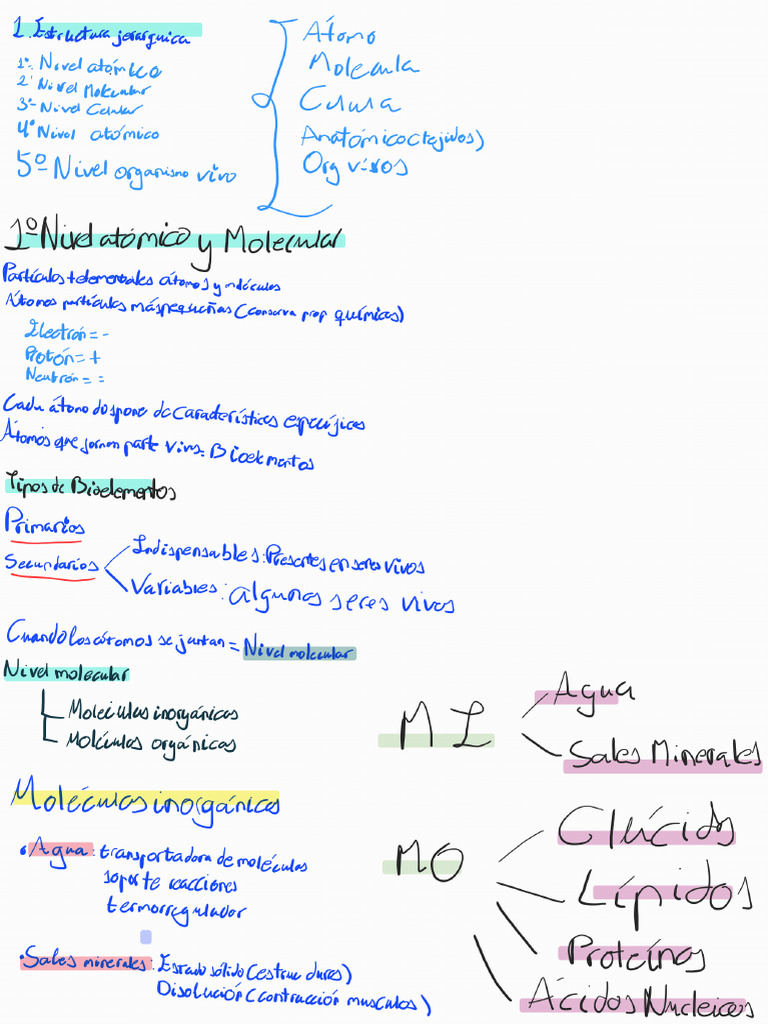 1. Estructura jerarquica
1º Nivel atómico
2º Nivel Molecular
3º Nivel Celular
4º Nivel atómico
5º Nivel organismo vivo
Átomo
Molecula
Celula
Anatómico (tejidos)
Org vivos
1º Nivel atómico y Molecular
Partículas + elementales átomos y moléculas
Átomos partículas más pequeñas (conserva prop químicas)
Electrón = -
Protón = +
Neutrón = =
Cada átomo dispone de características específicas
Átomos que forman parte vivos = Bioelementos
Tipos de Bioelementos
Primarios
Secundarios
Indispensables: Presentes en seres vivos
Variables: algunos seres vivos
Cuando los átomos se juntan = Nivel molecular
Nivel molecular
Moléculas inorgánicas
Moléculas orgánicas
MI
Agua
Sales Minerales
Moléculas inorgánicas
• Agua: transportadora de moléculas
soporte reacciones
termorregulador
• Sales minerales: Estado sólido (estruc duras)
Disolución (contracción musculos)
MO
Glúcidos
Lípidos
Proteínas
Ácidos Nucleicos